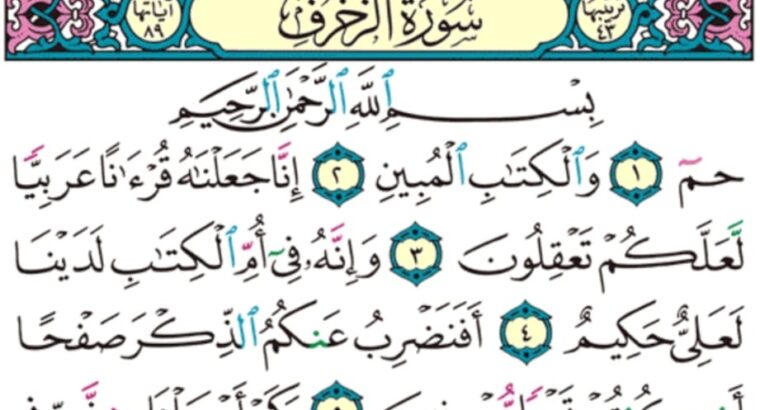 آياتها ٨٩ سورة الزخرف ترتيبها ٤٣
بِسْمِ ٱللَّهِ ٱلرَّحْمَٰنِ ٱلرَّحِيمِ
حمٓ ١ وَٱلْكِتَٰبِ ٱلْمُبِينِ ٢ إِنَّا جَعَلْنَٰهُ قُرْءَٰنًا عَرَبِيًّا
لَّعَلَّكُمْ تَعْقِلُونَ ٣ وَإِنَّهُۥ فِىٓ أُمِّ ٱلْكِتَٰبِ لَدَيْنَا
لَعَلِىٌّ حَكِيمٌ ٤ أَفَنَضْرِبُ عَنكُمُ ٱلذِّكْرَ صَفْحًا